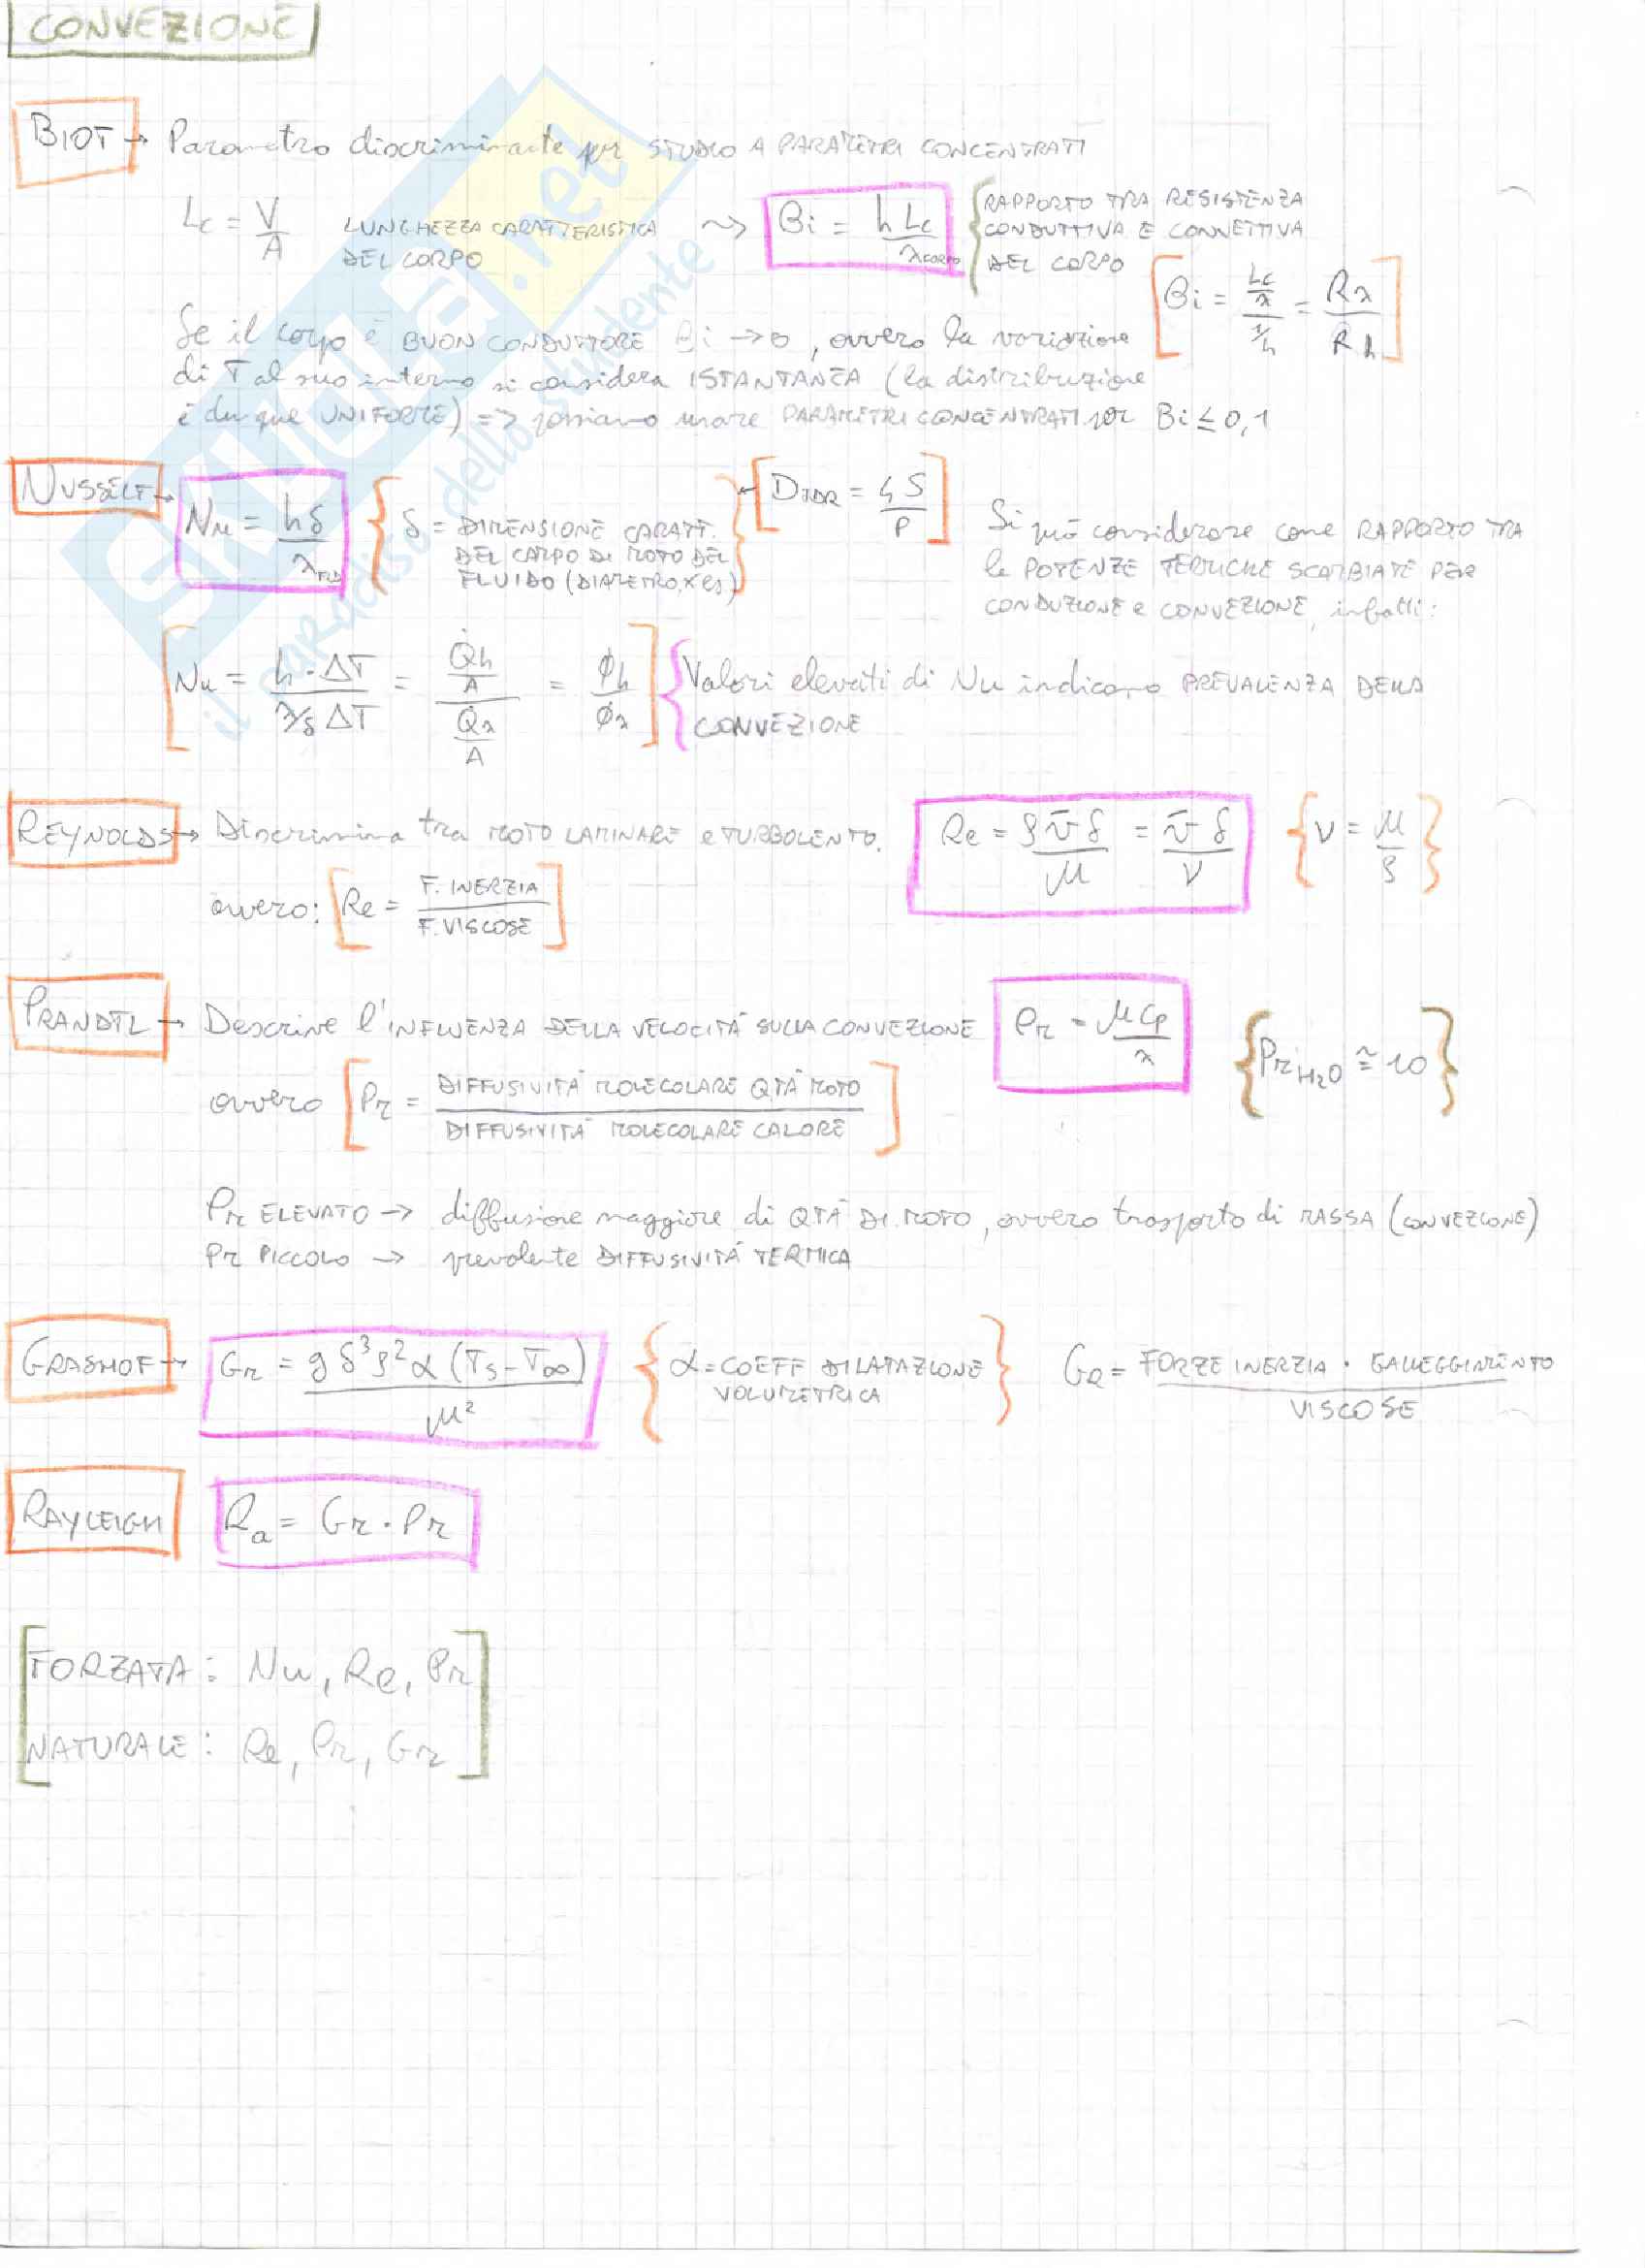 CONVEZIONE
BIOT → Parametro discriminante per STUDIO A PARAMETRI CONCENTRATI
Lc = V/A LUNGHEZZA CARATTERISTICA DEL CORPO ⇝ Bi = h Lc / λCORPO { RAPPORTO TRA RESISTENZA
CONDUTTIVA E CONVETTIVA
DEL CORPO [Bi = (Lc/λ)/(1/h) = Rλ/Rh]
Se il corpo è BUON CONDUTTORE Bi → 0, ovvero la variazione
di T al suo interno si considera ISTANTANEA (la distribuzione
è dunque UNIFORME) => possiamo usare PARAMETRI CONCENTRATI per Bi ≤ 0,1
NUSSELT → Nu = hδ/λFLD { δ = DIMENSIONE CARATT.
DEL CAMPO DI MOTO DEL
FLUIDO (DIAMETRO, x es) } ← [DIDR = 4S/P]
Si può considerare come RAPPORTO TRA
le POTENZE TERMICHE SCAMBIATE PER
CONDUZIONE e CONVEZIONE, infatti:
[Nu = h·ΔT / (λ/δ ΔT) = (Q̇h/A)/(Q̇λ/A) = ϕh/ϕλ] { Valori elevati di Nu indicano PREVALENZA DELLA
CONVEZIONE
REYNOLDS → Discrimina tra MOTO LAMINARE e TURBOLENTO. Re = ρ v̄ δ/μ = v̄ δ/ν {ν = μ/ρ}
ovvero: [Re = F. INERZIA / F. VISCOSE]
PRANDTL → Descrive l'INFLUENZA DELLA VELOCITÀ SULLA CONVEZIONE Pr = μ Cp/λ {Pr H2O ≃ 10}
ovvero [Pr = DIFFUSIVITÀ MOLECOLARE QTÀ MOTO / DIFFUSIVITÀ MOLECOLARE CALORE]
Pr ELEVATO → diffusione maggiore di QTÀ DI MOTO, ovvero trasporto di MASSA (CONVEZIONE)
Pr PICCOLO → prevalente DIFFUSIVITÀ TERMICA
GRASHOF → Gr = g δ³ρ²α (Ts - T∞) / μ² {α = COEFF DILATAZIONE
VOLUMETRICA} Gr = FORZE INERZIA · GALLEGGIMENTO / VISCOSE
RAYLEIGH Ra = Gr · Pr
FORZATA: Nu, Re, Pr
NATURALE: Re, Pr, Gr
SKUOLA.net
il paradiso dello studente